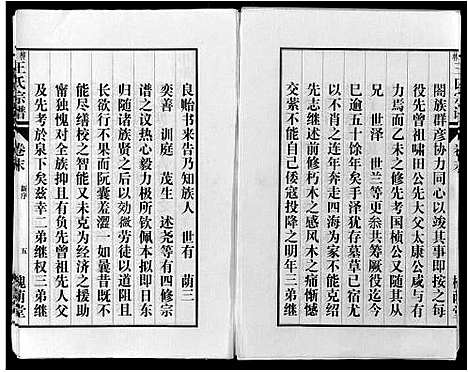 閤族羣彥協力同心以圖一本即按之每
役先曾祖嘯田公先大父太康公咸與有
力焉而乙未之修先考国楨公又随其从
兄 世澤 世兰 等共筹厥役迄今
巳逾五十馀年矣手泽犹存墓草已宿言
念及斯能不痛心继杈不能为大人之志
先志继述前修朽木之感风木之痛惭憾
交萦不能自已倭寇投降之明年三弟继
良贻书来告乃知族人 世有 荫三
奕善 训庭 茂生 述尧等有四修宗
谱之议热心毅力极所钦佩本拟即日东
归随诸族贤之后以效微劳徒以道阻且
长欲行不果而阮囊羞涩一如曩昔既不
能尽缮校之智能又未克为经济之援助
宁独愧对全族抑且有负先曾祖先人父
及先考於泉下矣兹幸二弟继权三弟继
王氏宗谱
卷末
新序
五
槐荫堂